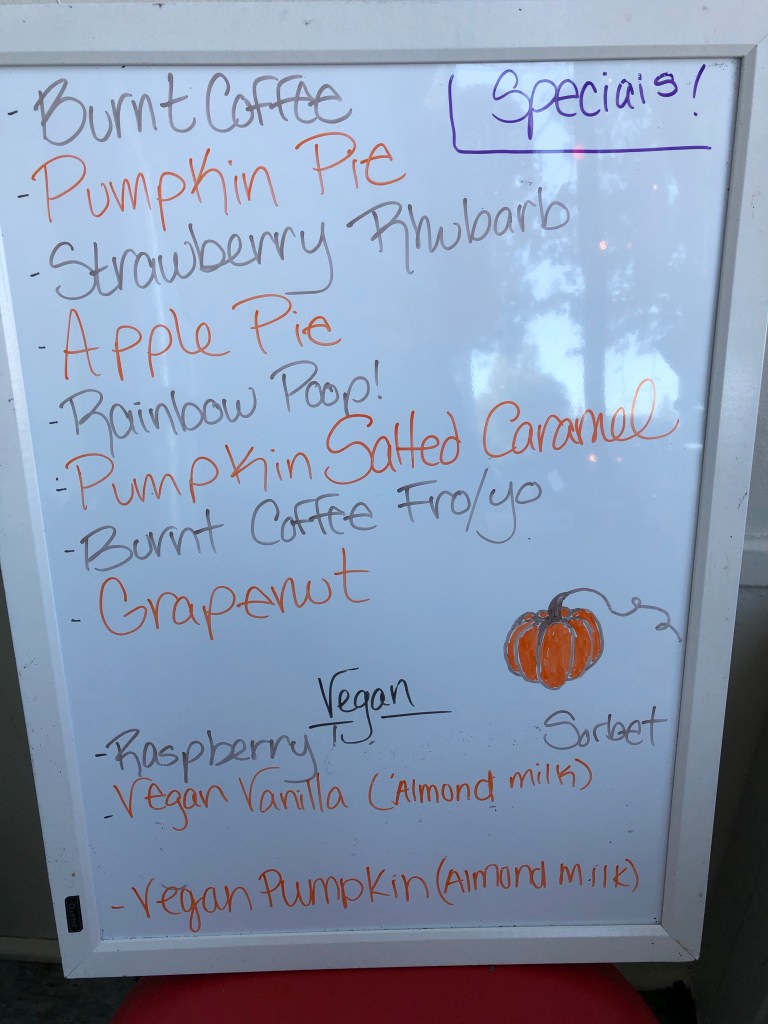 Specials!
- Burnt Coffee
- Pumpkin Pie
- Strawberry Rhubarb
- Apple Pie
- Rainbow Poop!
- Pumpkin Salted Caramel
- Burnt Coffee Fro/yo
- Grapenut
Vegan
- Raspberry Sorbet
- Vegan Vanilla (Almond milk)
- Vegan Pumpkin (Almond Milk)